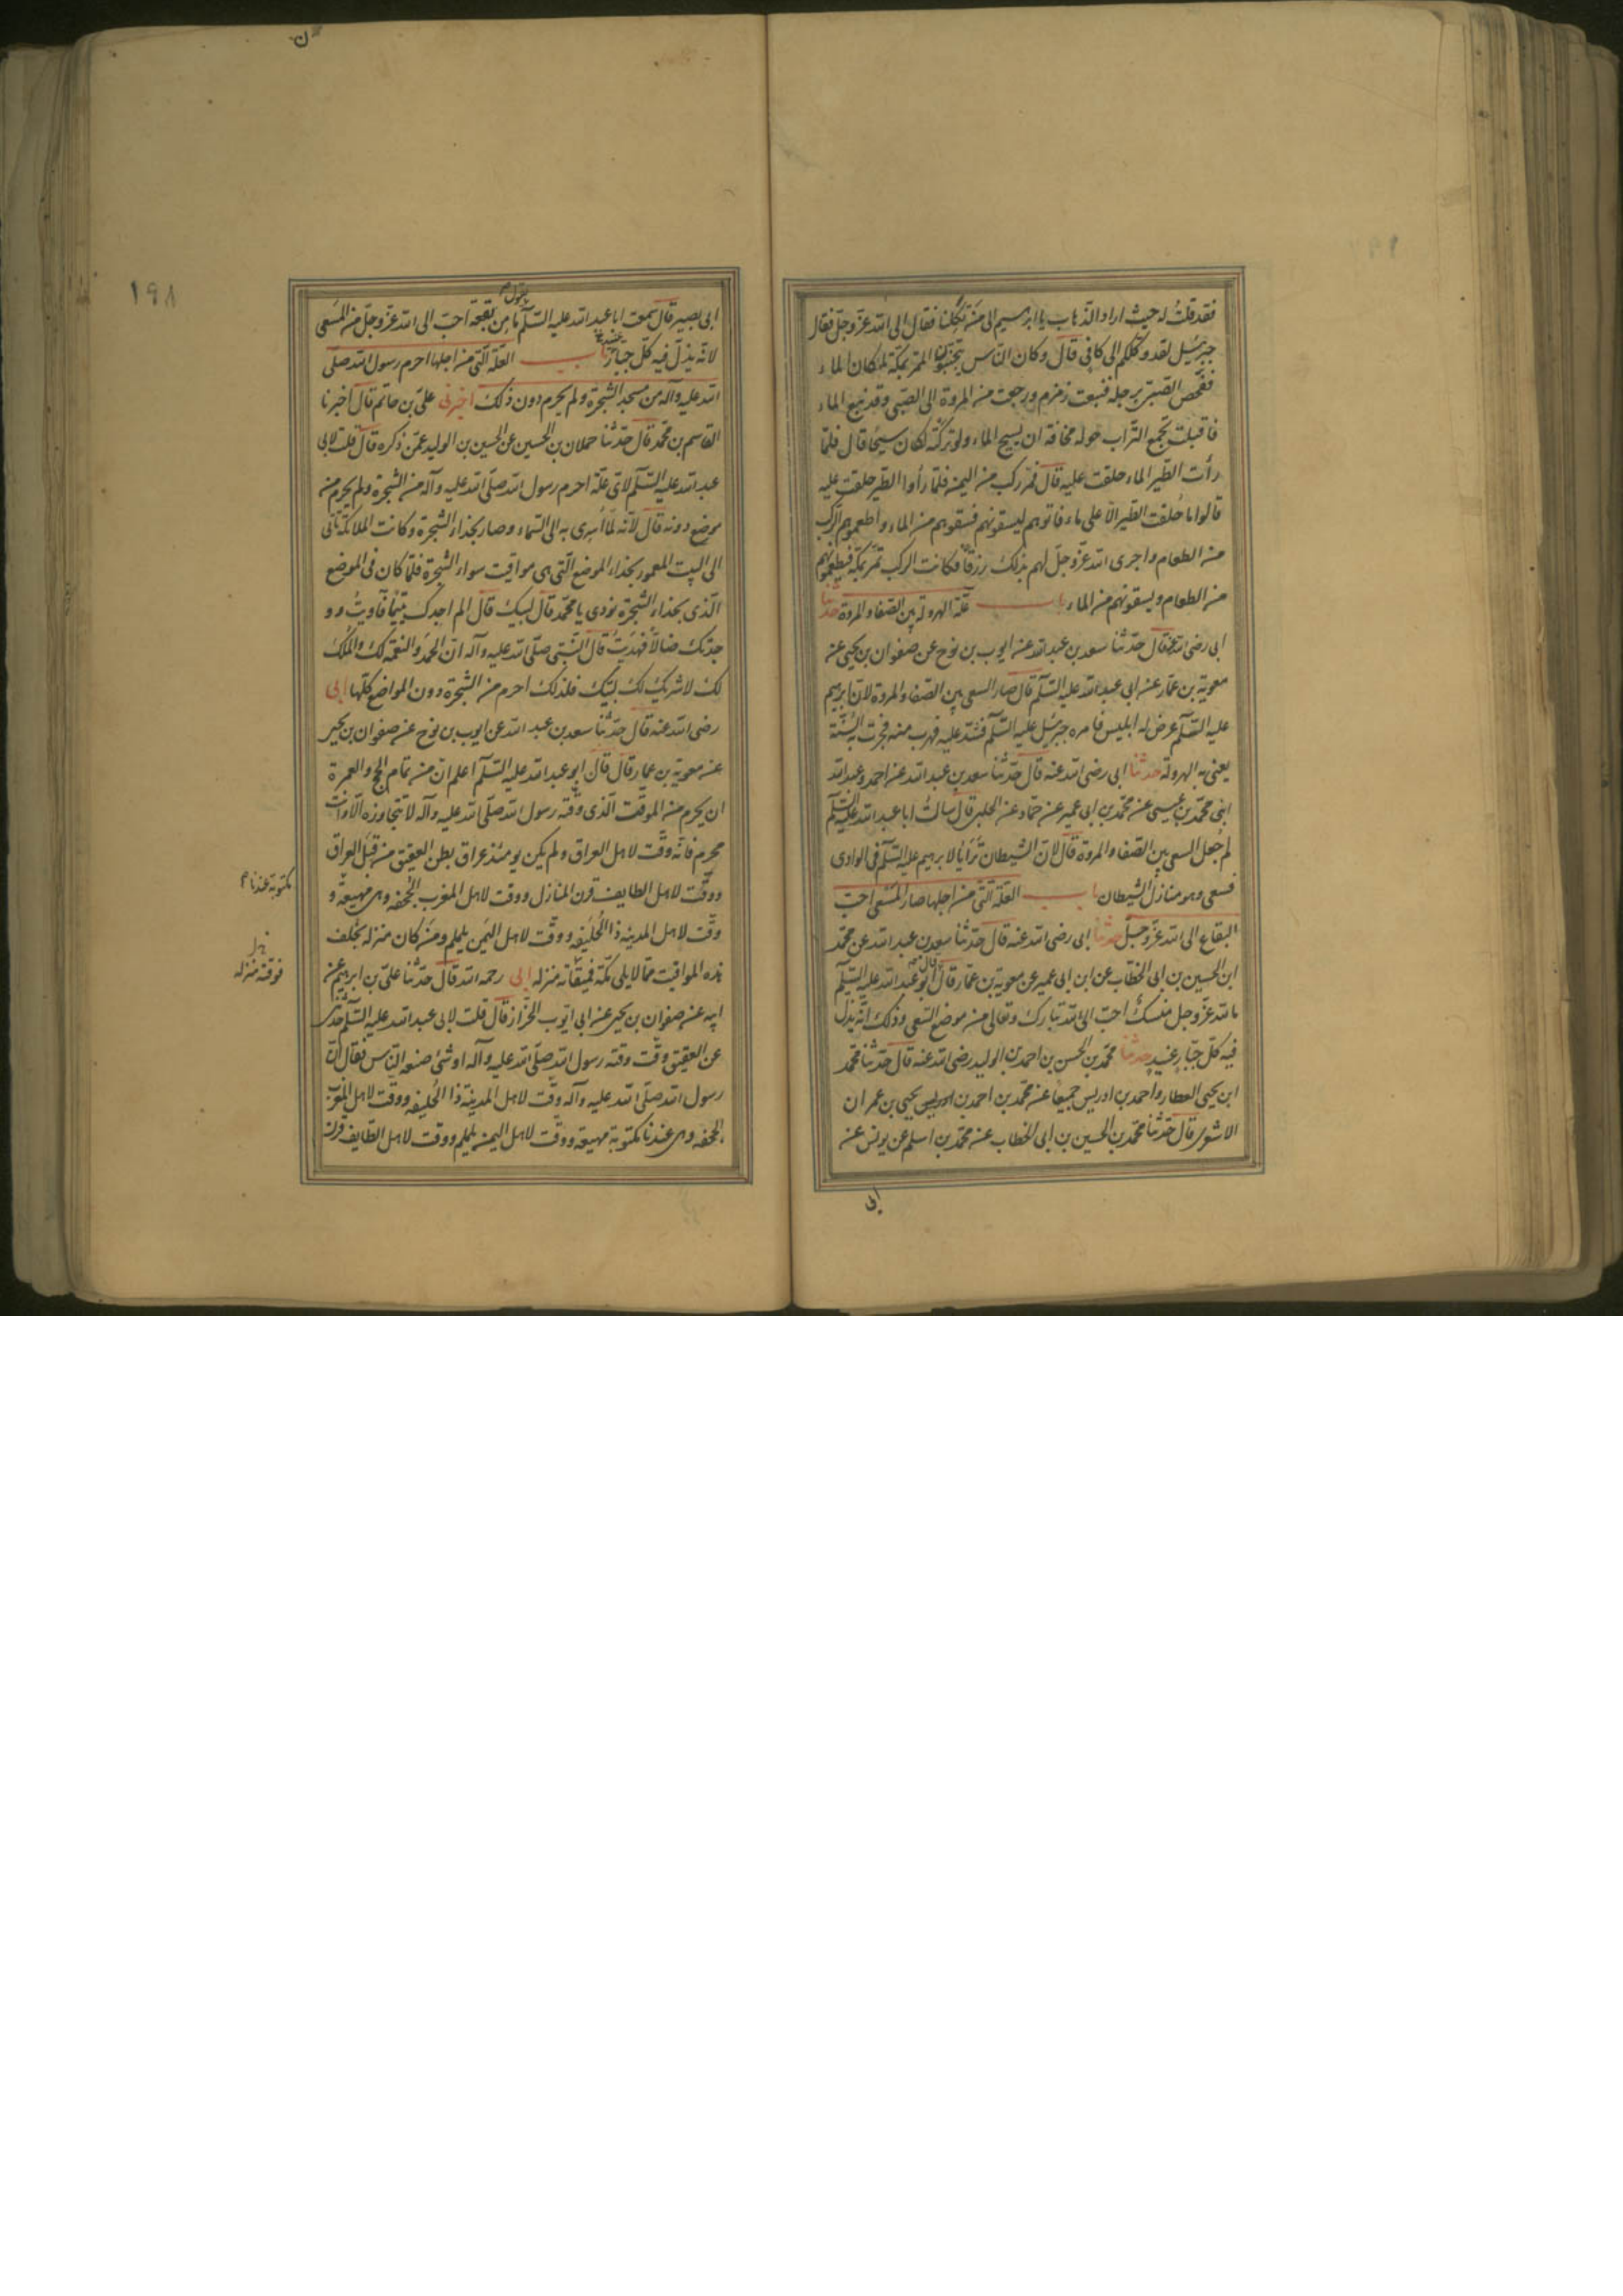 فقد قلت له حيث اراد الذهاب يا ابرهيم الى من تكلنا فقال الى الله عزّ وجلّ فقال
جبرئيل لقد وكلكم الى كافي قال وكان الناس يتجنبون الممر بمكة لمكان الماء
ففحص الصبي برجله فنبعت زمزم ورجعت من المروة الى الصبي وقد نبع الماء
فاقبلت تجمع التراب حوله مخافة ان يسيح الماء ولو تركته لكان سيحا قال فلما
رأت الطير الماء حلقت عليه قال فمر ركب من اليمن فلما رأوا الطير حلقت عليه
قالوا ما حلقت الطير الا على ماء فاتوهم ليسقونهم فسقوهم من الماء واطعموهم الركب
من الطعام واجرى الله عزّ وجلّ لهم بذلك رزقا فكانت الركب تمر بمكة فيطعمونهم
من الطعام ويسقونهم من الماء باب علة الهرولة بين الصفا والمروة حدثنا
ابي رضي الله عنه قال حدثنا سعد بن عبد الله عن ايوب بن نوح عن صفوان بن يحيى عن
معوية بن عمار عن ابي عبد الله عليه السلم قال صار السعي بين الصفا والمروة لان ابرهيم
عليه السلم عرض له ابليس فامره جبرئيل عليه السلم فشد عليه فهرب منه فجرت به السنة
يعنى به الهرولة حدثنا ابي رضي الله عنه قال حدثنا سعد بن عبد الله عن احمد وعبد الله
ابني محمد بن عيسى عن محمد بن ابي عمير عن حماد عن الحلبي قال سالت ابا عبد الله عليه السلم
لم جعل السعي بين الصفا والمروة قال لان الشيطان ترايا لابرهيم عليه السلم في الوادي
فسعى وهو منازل الشيطان باب العلة التي من اجلها صار المسعى احب
البقاع الى الله عزّ وجلّ حدثنا ابي رضي الله عنه قال حدثنا سعد بن عبد الله عن محمد
ابن الحسين بن ابي الخطاب عن ابن ابي عمير عن معوية بن عمار قال قال ابو عبد الله عليه السلم
ما لله عزّ وجلّ منسك احب الى الله تبارك وتعالى من موضع السعي وذلك انه يذل
فيه كل جبار عنيد حدثنا محمد بن الحسن بن احمد بن الوليد رضي الله عنه قال حدثنا محمد
ابن يحيى العطار واحمد بن ادريس جميعا عن محمد بن احمد بن يحيى بن عمران
الاشعري قال حدثنا محمد بن الحسين بن ابي الخطاب عن محمد بن اسلم عن يونس عن
ابى
١٩٨
ابي بصير قال سمعت ابا عبد الله عليه السلم يقول ما من بقعة احب الى الله عزّ وجلّ من المسعى
لانه يذل فيه كل جبار عنيد باب العلة التي من اجلها احرم رسول الله صلى
الله عليه وآله من مسجد الشجرة ولم يحرم دون ذلك اخبرني علي بن حاتم قال اخبرنا
القاسم بن محمد قال حدثنا حملان بن الحسين عن الحسين بن الوليد عمن ذكره قال قلت لابي
عبد الله عليه السلم لاي علة احرم رسول الله صلى الله عليه وآله من الشجرة ولم يحرم من
موضع دونه قال لانه لما اسري به الى السماء وصار بحذاء الشجرة وكانت الملائكة تاتي
الى البيت المعمور بحذاء الموضع التي هي مواقيت سواء الشجرة فلما كان في الموضع
الذي بحذاء الشجرة نودي يا محمد قال لبيك قال الم اجدك يتيما فآويت وو
جدتك ضالا فهديت قال النبي صلى الله عليه وآله ان الحمد والنعمة لك والملك
لك لا شريك لك لبيك فلذلك احرم من الشجرة دون المواضع كلها ابي
رضي الله عنه قال حدثنا سعد بن عبد الله عن ايوب بن نوح عن صفوان بن يحيى
عن معوية بن عمار قال قال ابو عبد الله عليه السلم اعلم ان من تمام الحج والعمرة
ان يحرم من الموقت الذي وقته رسول الله صلى الله عليه وآله لا تتجاوزه الا وانت
محرم فانه وقت لاهل العراق ولم يكن يومئذ عراق بطن العقيق من قبل العراق
ووقت لاهل الطايف قرن المنازل ووقت لاهل المغرب الجحفة وهي مهيعة و
مكتوبة عندنا
وقت لاهل المدينة ذا الحليفة ووقت لاهل اليمن يلملم ومن كان منزله بخلف
هذه المواقيت مما لا يلي مكة فميقاته منزله ابي رحمه الله قال حدثنا علي بن ابرهيم عن
فوقته منزله
ابيه عن صفوان بن يحيى عن ابي ايوب الخزاز قال قلت لابي عبد الله عليه السلم حدثني
عن العقيق وقت وقته رسول الله صلى الله عليه وآله او شئ صنعه الناس فقال ان
رسول الله صلى الله عليه وآله وقت لاهل المدينة ذا الحليفة ووقت لاهل المغرب
الجحفة وهي عندنا مكتوبة مهيعة ووقت لاهل اليمن يلملم ووقت لاهل الطايف قرن